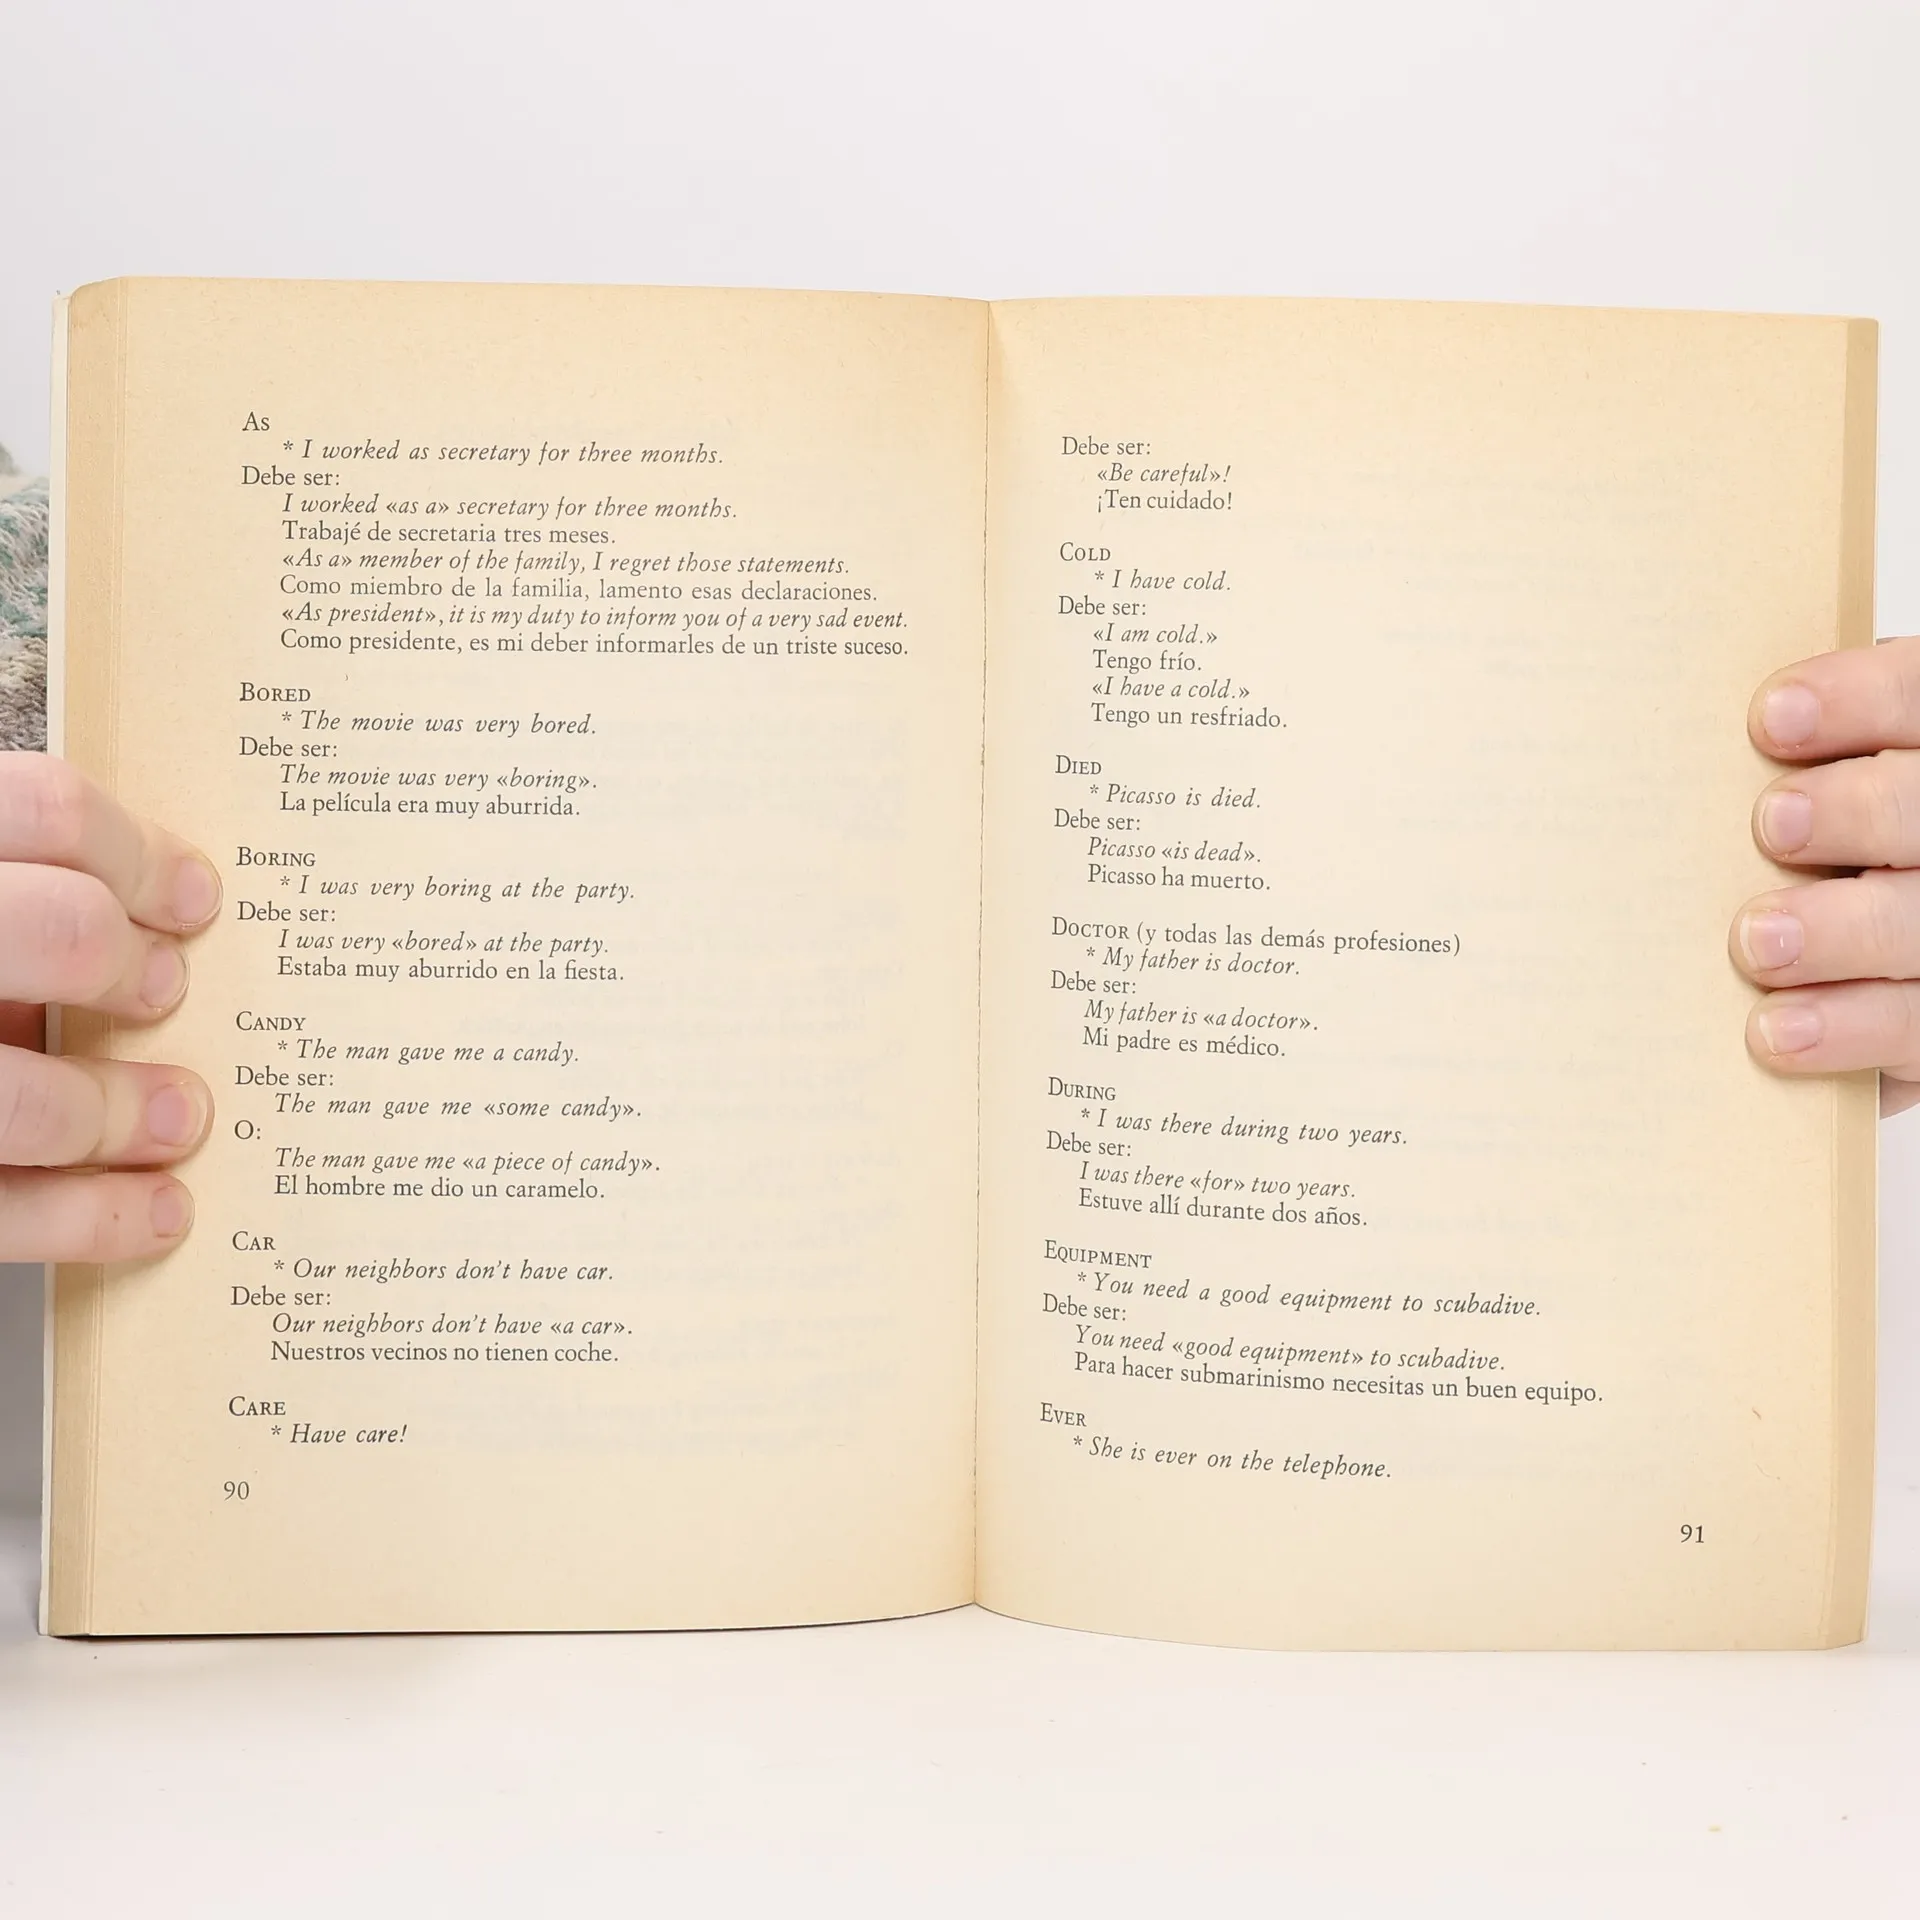 As
* I worked as secretary for three months.
Debe ser:
I worked «as a» secretary for three months.
Trabajé de secretaria tres meses.
«As a» member of the family, I regret those statements.
Como miembro de la familia, lamento esas declaraciones.
«As president», it is my duty to inform you of a very sad event.
Como presidente, es mi deber informarles de un triste suceso.
BORED
* The movie was very bored.
Debe ser:
The movie was very «boring».
La película era muy aburrida.
BORING
* I was very boring at the party.
Debe ser:
I was very «bored» at the party.
Estaba muy aburrido en la fiesta.
CANDY
* The man gave me a candy.
Debe ser:
The man gave me «some candy».
O:
The man gave me «a piece of candy».
El hombre me dio un caramelo.
CAR
* Our neighbors don't have car.
Debe ser:
Our neighbors don't have «a car».
Nuestros vecinos no tienen coche.
CARE
* Have care!
90
Debe ser:
«Be careful»!
¡Ten cuidado!
COLD
* I have cold.
Debe ser:
«I am cold.»
Tengo frío.
«I have a cold.»
Tengo un resfriado.
DIED
* Picasso is died.
Debe ser:
Picasso «is dead».
Picasso ha muerto.
DOCTOR (y todas las demás profesiones)
* My father is doctor.
Debe ser:
My father is «a doctor».
Mi padre es médico.
DURING
* I was there during two years.
Debe ser:
I was there «for» two years.
Estuve allí durante dos años.
EQUIPMENT
* You need a good equipment to scubadive.
Debe ser:
You need «good equipment» to scubadive.
Para hacer submarinismo necesitas un buen equipo.
EVER
* She is ever on the telephone.
91